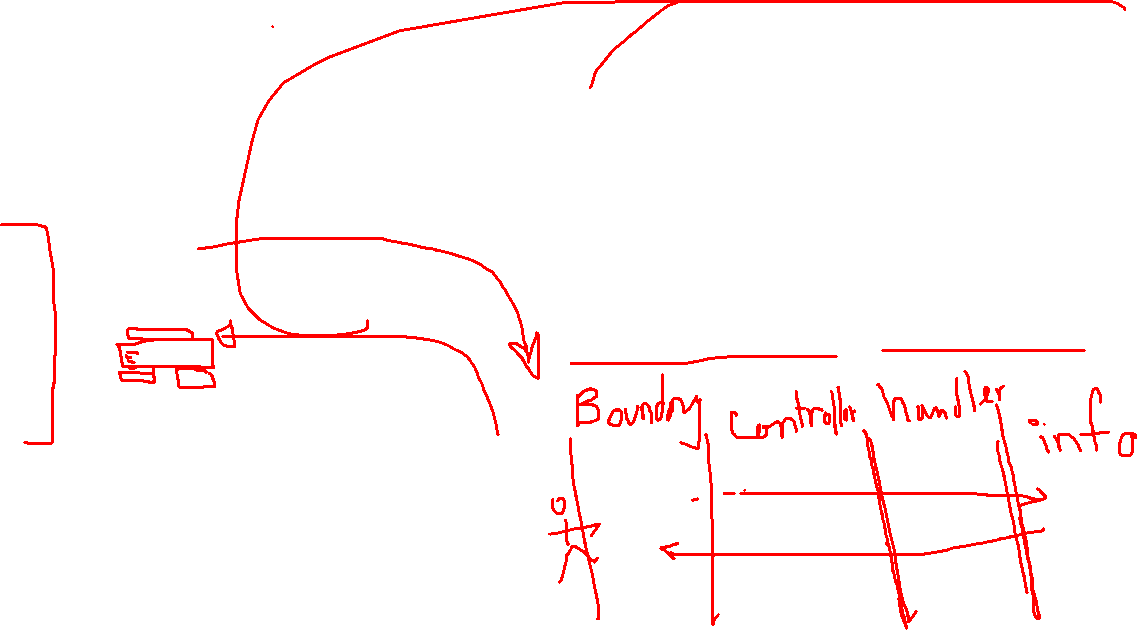 Boundry controllor handler info